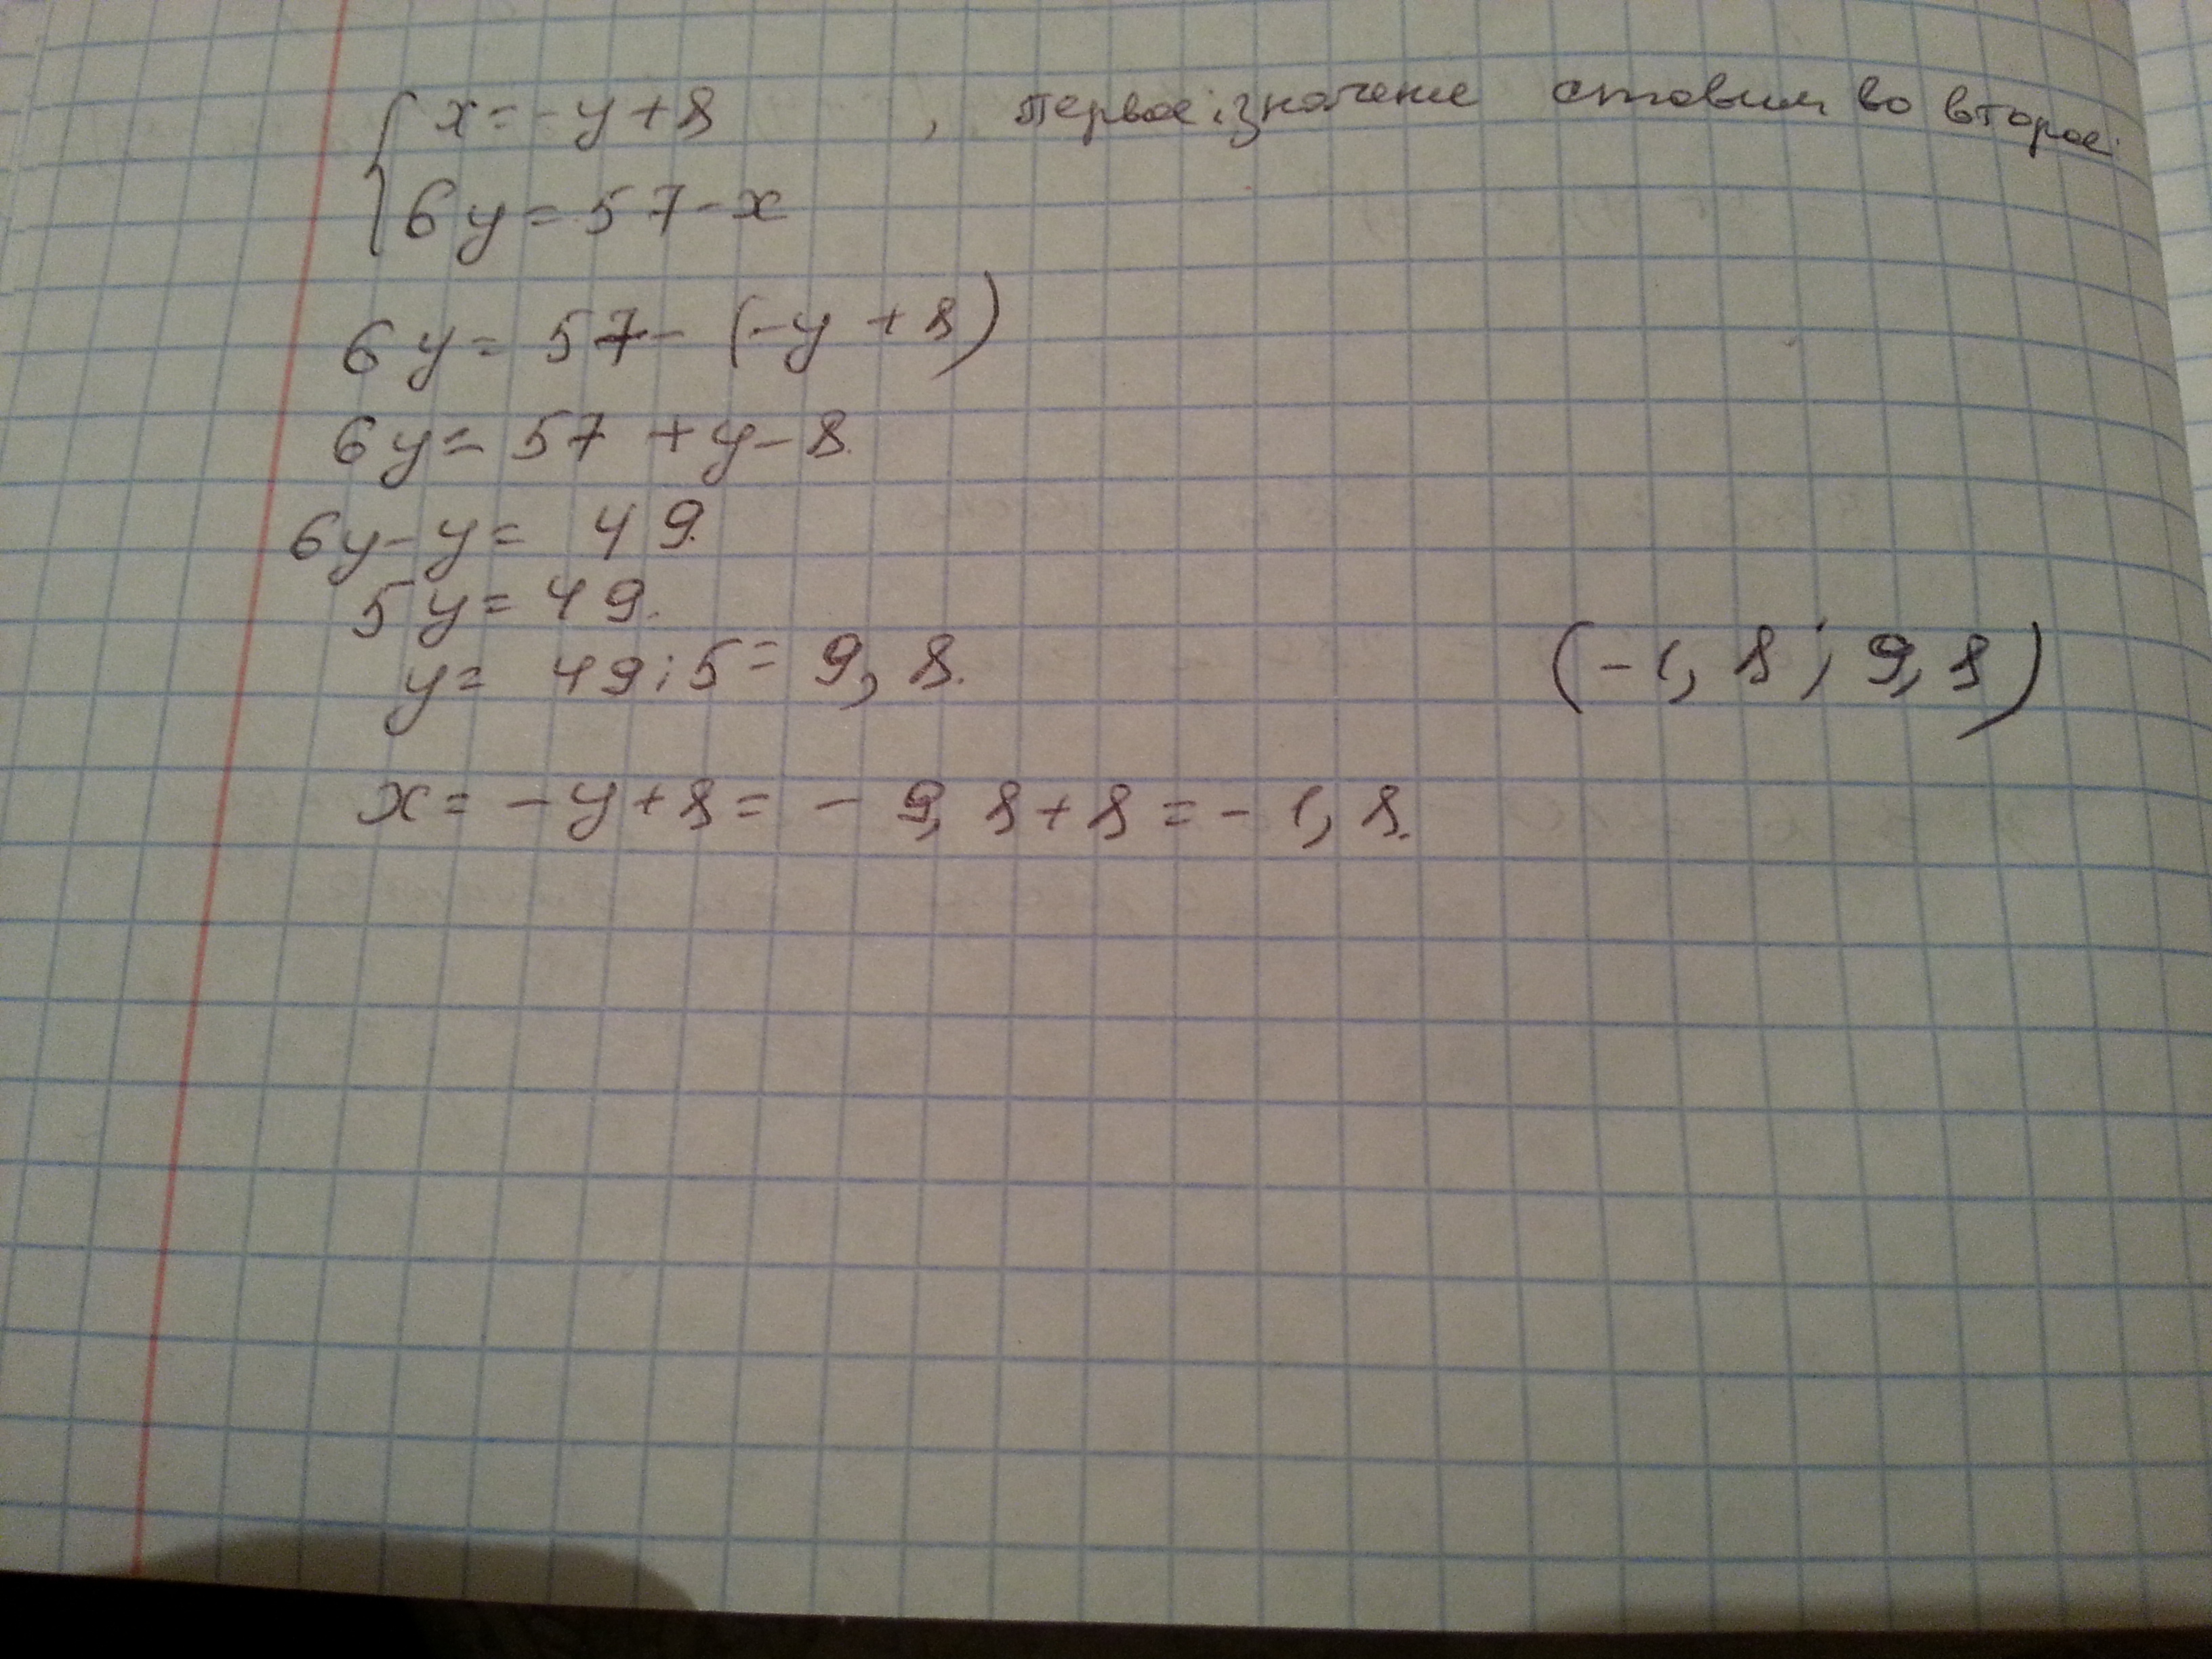 x = -y + 8 , первое значение ставим во второе.
6y = 57 - x
6y = 57 - (-y + 8)
6y = 57 + y - 8.
6y - y = 49.
5y = 49.
y = 49 : 5 = 9,8. (-1,8 ; 9,8)
x = -y + 8 = - 9,8 + 8 = - 1,8.